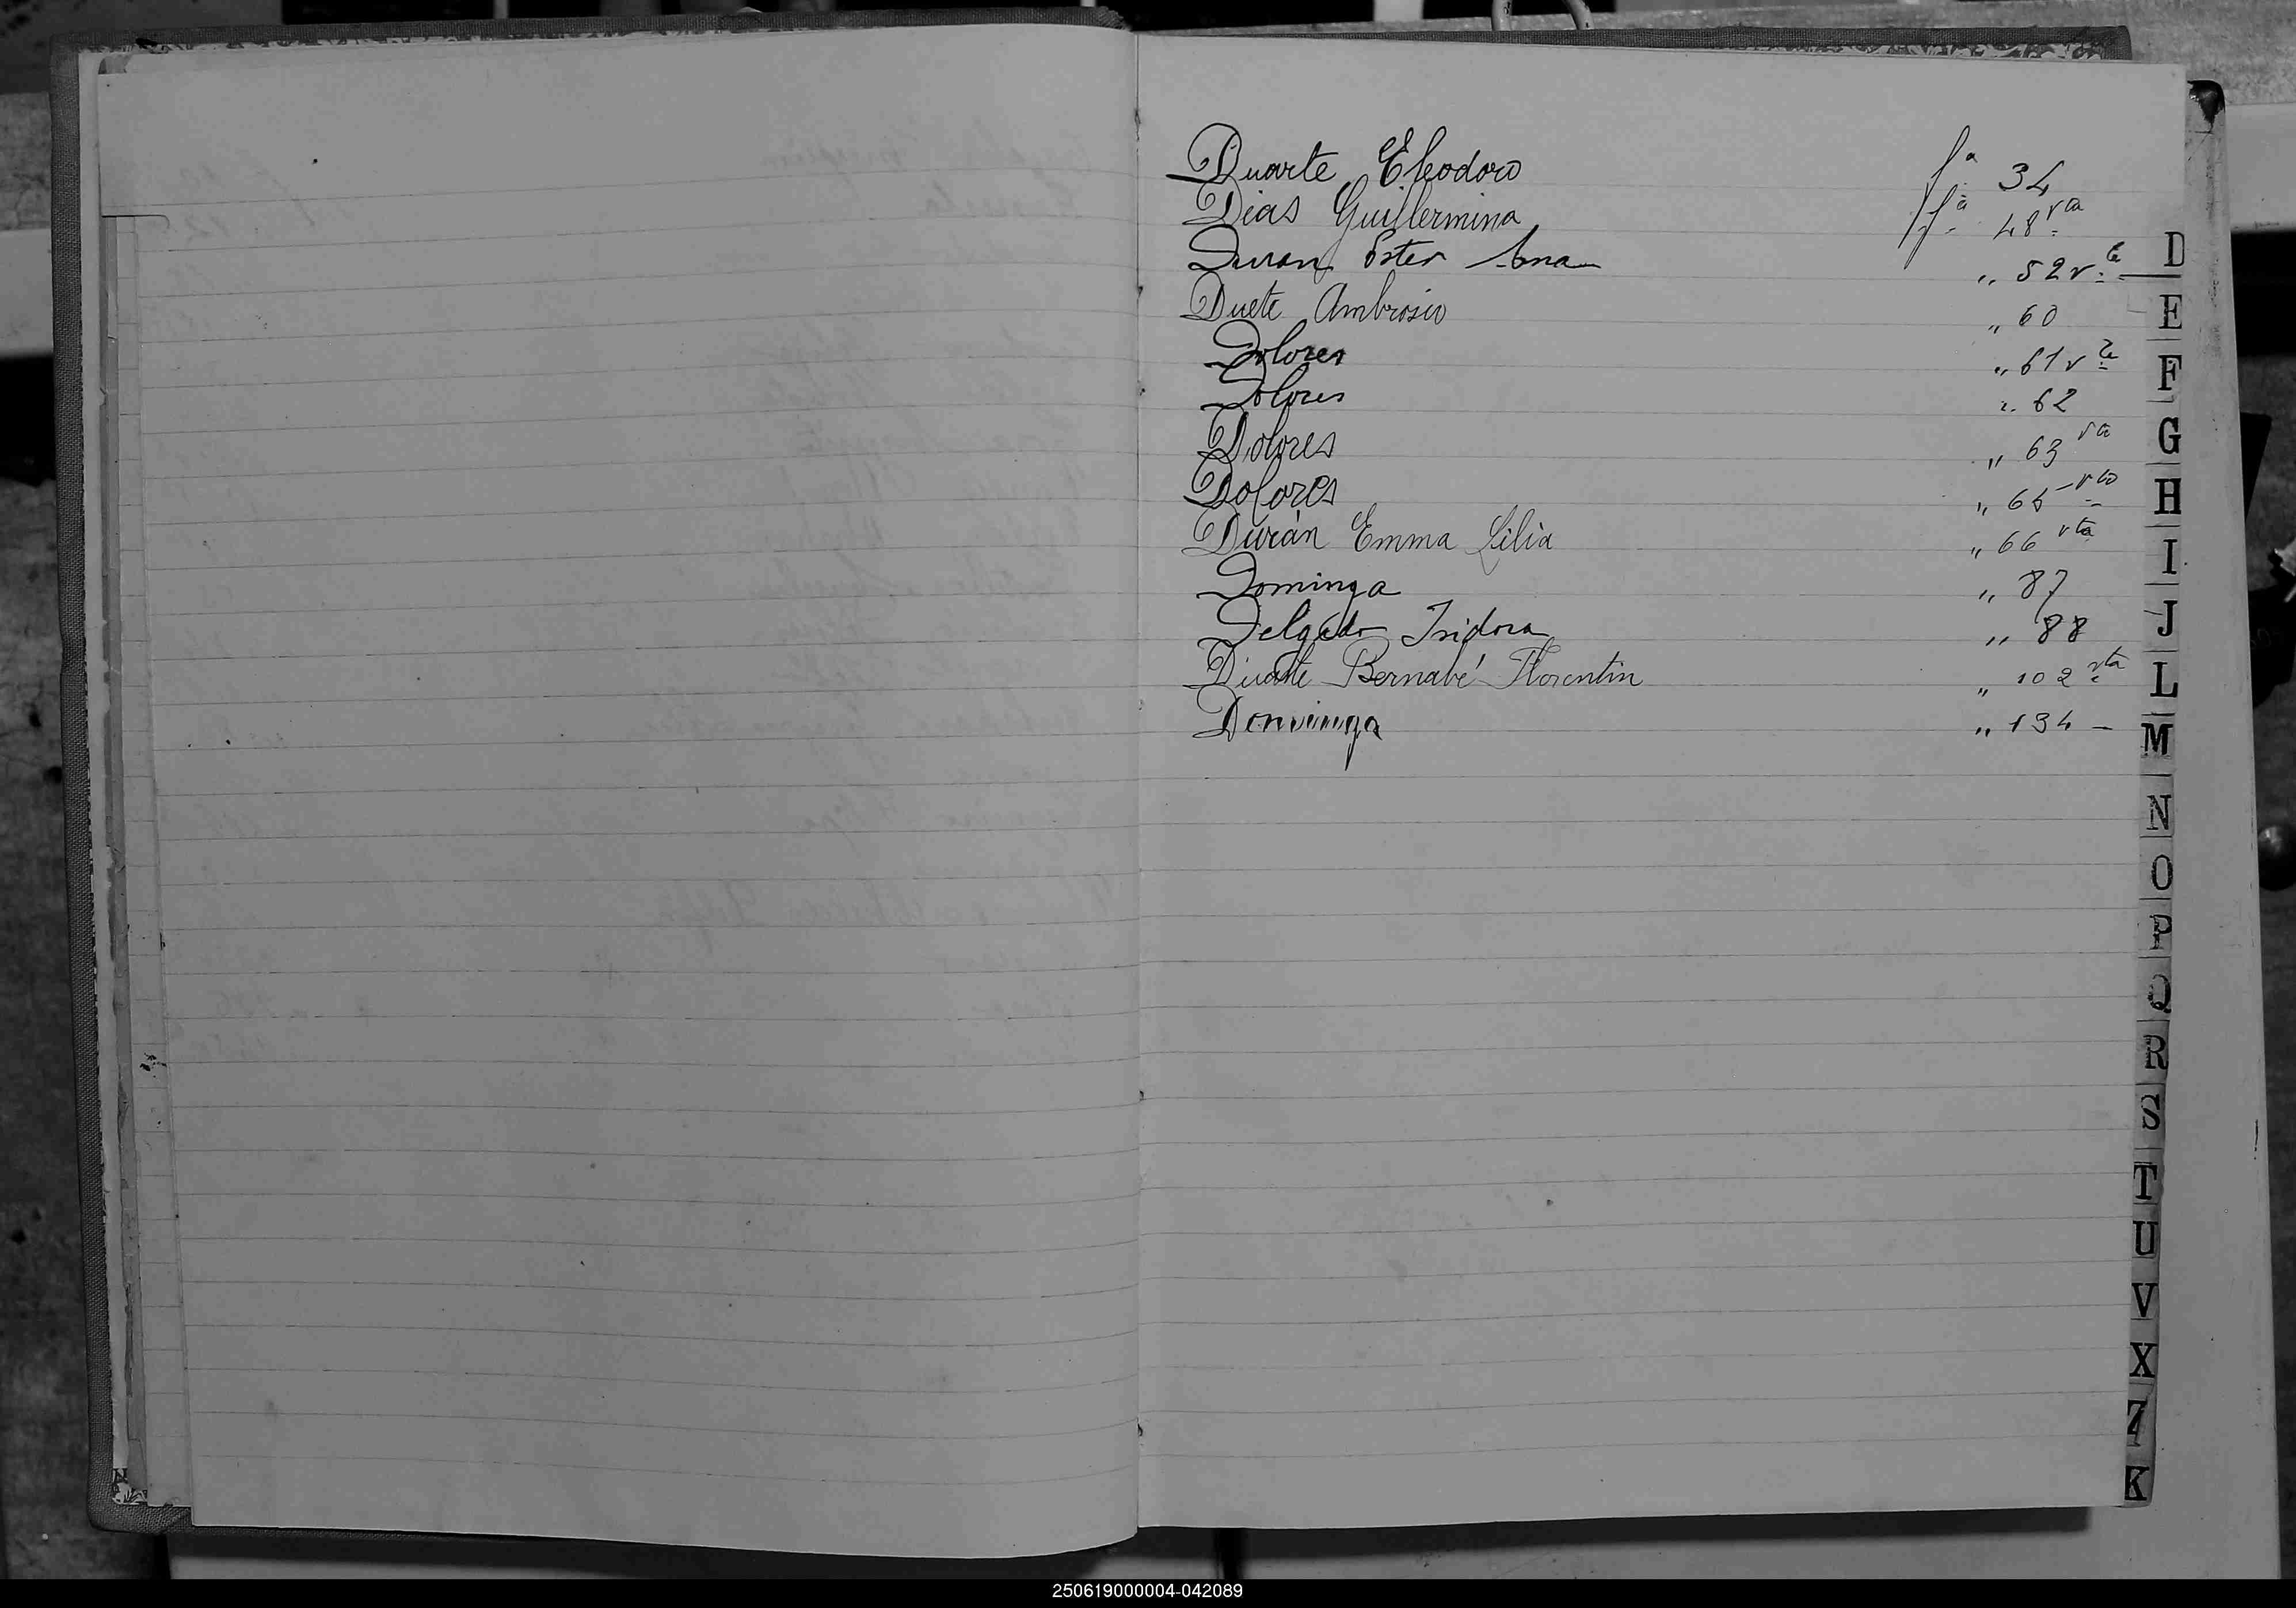 Duarte Eleodoro fª 34
Dias Guillermina fª 48 vta
Duran Ester Ana „ 52 vta
Duete Ambrosio „ 60
Dolores „ 61 vta
Dolores „ 62
Dolores „ 63 vta
Dolores „ 65 vto
Durán Emma Lilia „ 66 vta
Dominga „ 87
Delgado Isidora „ 88
Duarte Bernabé Florentin „ 102 vta
Dominga „ 134 –
D
E
F
G
H
I
J
L
M
N
O
P
Q
R
S
T
U
V
X
Z
K
250619000004-042089